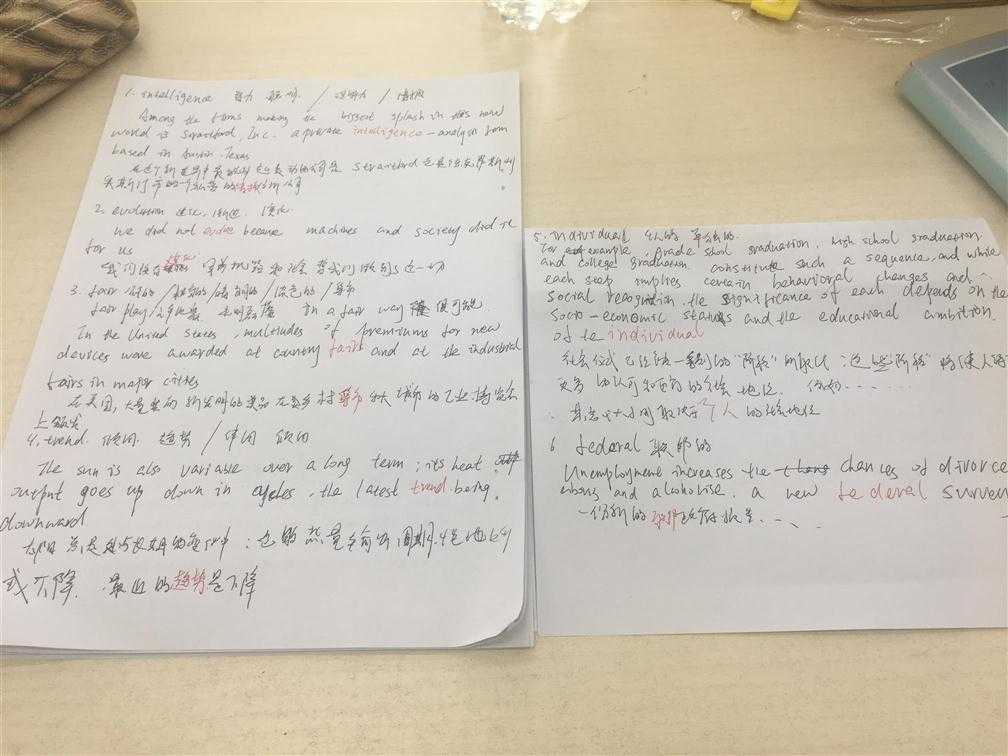 1. intelligence 智力 聪明 / 理解力 / 情报
Among the firms making the biggest splash in this new
world is Straitford, Inc. a private intelligence-analysis firm
based in Austin Texas
在这个新世界中 公司是 Straitford
的一个私营的情报分析公司
2. evolution 进化, 演化
We did not evolve because machines and society did it
for us
我们没有进化 因为机器和社会 替我们做到了这一切
3. fair /
fair play / in a fair way 很可能
In the United States, multitudes of premiums for new
devices were awarded at country fairs and at the industrial
fairs in major cities
在美国, 大量的新发明的奖品在乡村集市和大城市的工业博览会
上颁发
4. trend. 倾向 趋势 /
The sun is also variable over a long term; its heat
output goes up down in cycles, the latest trend being
downward
太阳总是处于长期的变化中; 它的热量输出周期性地上升
或下降. 最近的趋势是下降
5. individual 个人的 单独的
for example grade school graduation, high school graduation
and college graduation constitute such a sequence, and while
each step implies certain behavioral changes and
social recognition, the significance of each depends on the
socio-economic status and the educational ambition
of te individual
社会仪式已经被一系列的"阶段"所取代; 这些阶段
认可和新的社会地位. 例如......
取决于个人的社会地位
6 federal 联邦的
Unemployment increases the chances of divorce
and a new federal survey
一份新的联邦政府报告....